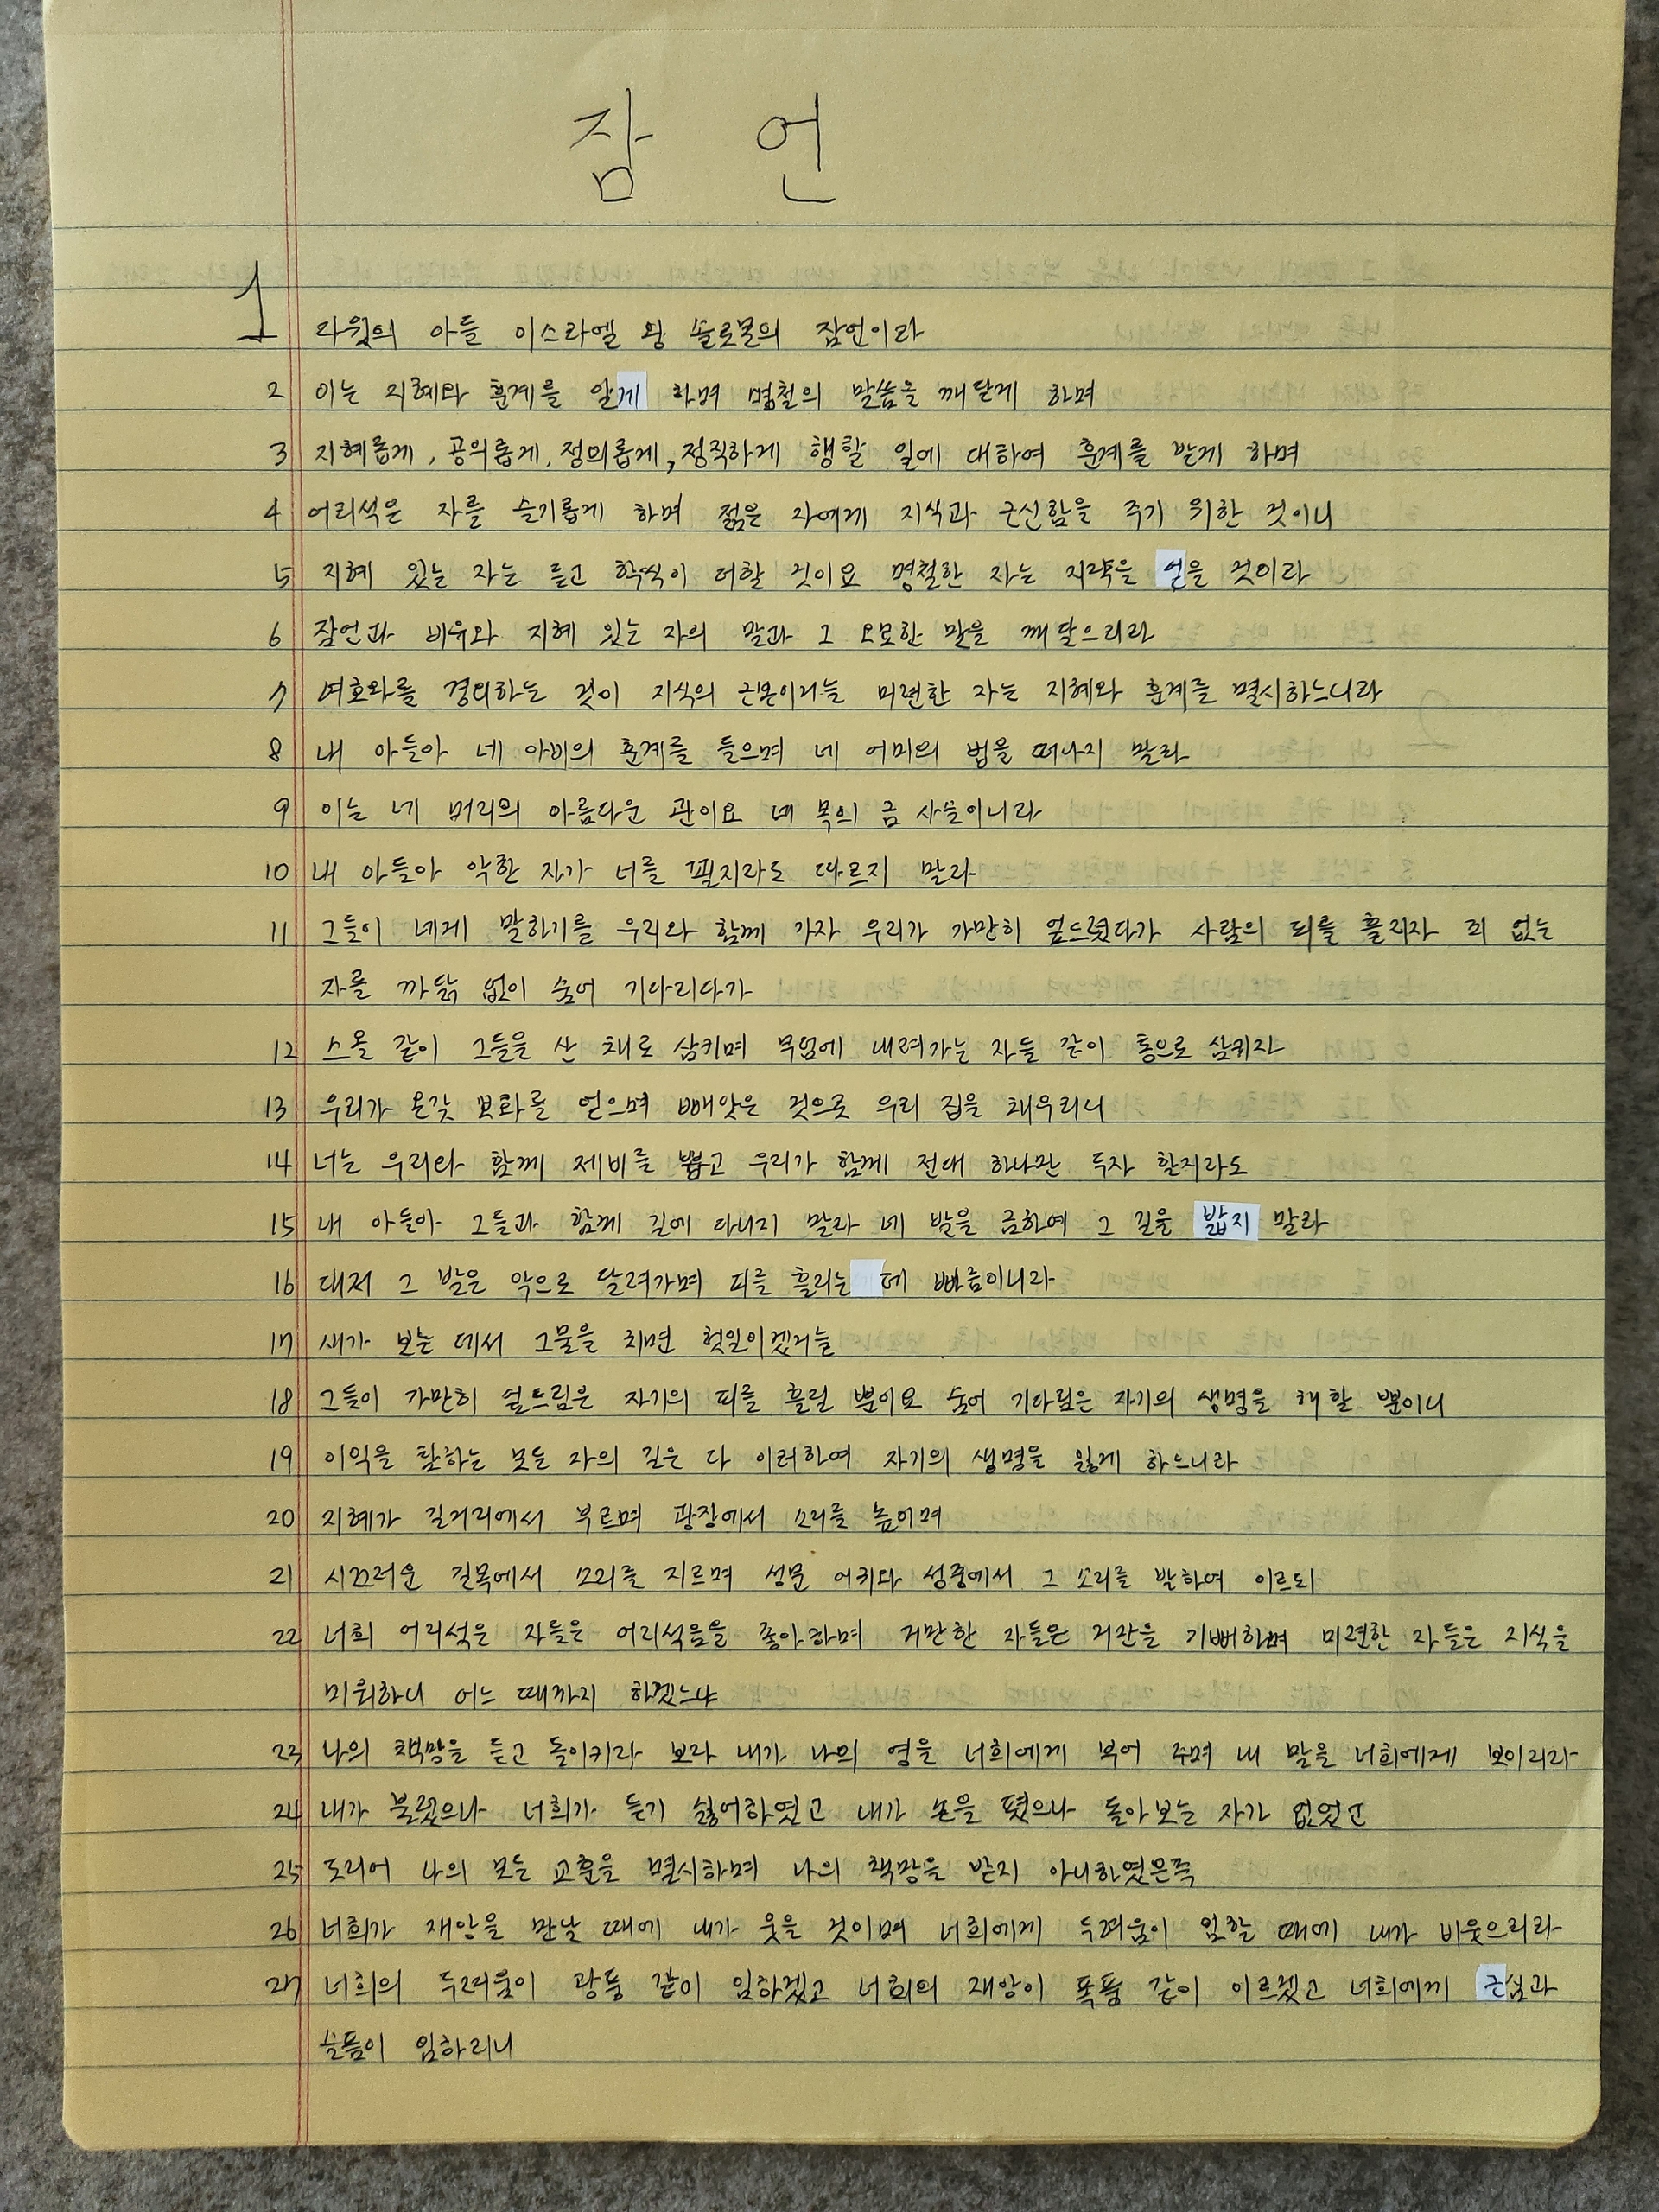 잠 언
1 다윗의 아들 이스라엘 왕 솔로몬의 잠언이라
2 이는 지혜와 훈계를 알게 하며 명철의 말씀을 깨닫게 하며
3 지혜롭게, 공의롭게, 정의롭게, 정직하게 행할 일에 대하여 훈계를 받게 하며
4 어리석은 자를 슬기롭게 하며 젊은 자에게 지식과 근신함을 주기 위한 것이니
5 지혜 있는 자는 듣고 학식이 더할 것이요 명철한 자는 지략을 얻을 것이라
6 잠언과 비유와 지혜 있는 자의 말과 그 오묘한 말을 깨달으리라
7 여호와를 경외하는 것이 지식의 근본이거늘 미련한 자는 지혜와 훈계를 멸시하느니라
8 내 아들아 네 아비의 훈계를 들으며 네 어미의 법을 떠나지 말라
9 이는 네 머리의 아름다운 관이요 네 목의 금 사슬이니라
10 내 아들아 악한 자가 너를 꾈지라도 따르지 말라
11 그들이 네게 말하기를 우리와 함께 가자 우리가 가만히 엎드렸다가 사람의 피를 흘리자 죄 없는
자를 까닭 없이 숨어 기다리다가
12 스올 같이 그들을 산 채로 삼키며 무덤에 내려가는 자들 같이 통으로 삼키자
13 우리가 온갖 보화를 얻으며 빼앗은 것으로 우리 집을 채우리니
14 너는 우리와 함께 제비를 뽑고 우리가 함께 전대 하나만 두자 할지라도
15 내 아들아 그들과 함께 길에 다니지 말라 네 발을 금하여 그 길을 밟지 말라
16 대저 그 발은 악으로 달려가며 피를 흘리는 데 빠름이니라
17 새가 보는 데서 그물을 치면 헛일이겠거늘
18 그들이 가만히 엎드림은 자기의 피를 흘릴 뿐이요 숨어 기다림은 자기의 생명을 해할 뿐이니
19 이익을 탐하는 모든 자의 길은 다 이러하여 자기의 생명을 잃게 하느니라
20 지혜가 길거리에서 부르며 광장에서 소리를 높이며
21 시끄러운 길목에서 소리를 지르며 성문 어귀와 성중에서 그 소리를 발하여 이르되
22 너희 어리석은 자들은 어리석음을 좋아하며 거만한 자들은 거만을 기뻐하며 미련한 자들은 지식을
미워하니 어느 때까지 하겠느냐
23 나의 책망을 듣고 돌이키라 보라 내가 나의 영을 너희에게 부어 주며 내 말을 너희에게 보이리라
24 내가 불렀으나 너희가 듣기 싫어하였고 내가 손을 폈으나 돌아보는 자가 없었고
25 도리어 나의 모든 교훈을 멸시하며 나의 책망을 받지 아니하였은즉
26 너희가 재앙을 만날 때에 내가 웃을 것이며 너희에게 두려움이 임할 때에 내가 비웃으리라
27 너희의 두려움이 광풍 같이 임하겠고 너희의 재앙이 폭풍 같이 이르겠고 너희에게 근심과
슬픔이 임하리니